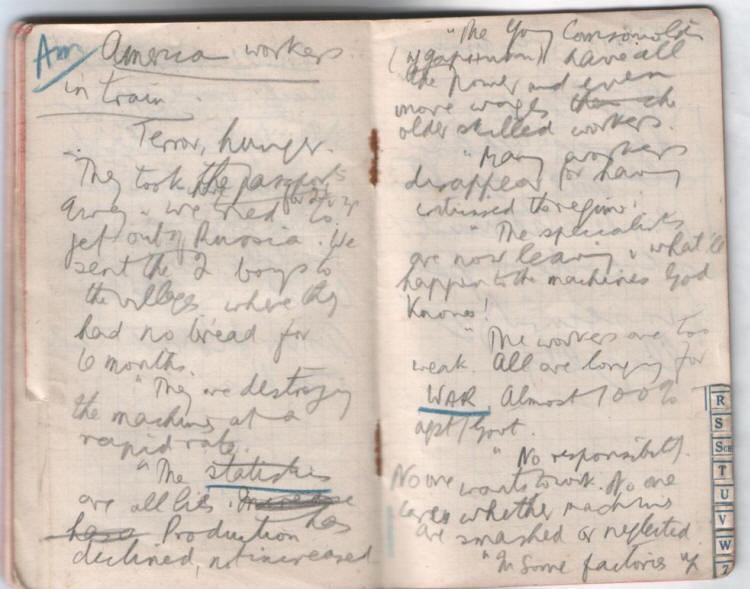 Am
America workers
in train.
Terror, hunger.
"They took the passports
away & we tried
for 2½ yr
to
get out of Russia. We
sent the 2 boys to
the villages where they
had no bread for
6 months.
"They are destroying
the machines at a
rapid rate.
"The statistics
are all lies. Increase
has a Production has
declined, not increased
"The Young Comsomols
have all
the power and even
more wages than the
older skilled workers.
"Many workers
disappear for having
criticised the regime.
"The specialists
are now leaving & what'll
happen to the machines God
Knows!
"The workers are too
weak. All are longing for
WAR. Almost 100%
agst Govt.
"No responsibility.
No one wants to work. No one
cares whether machines
are smashed or neglected.
"In some factories
R
S
Sch
T
U
V
W
Z